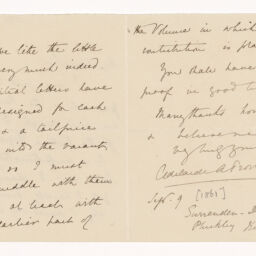 like the little
very much indeed.
letters have
designed for each
& a tailpiece
into the vacant
so I must
muddle with them
at least with
earlier part of
the Volume in which
institution is
You shall have
proof in good
Many thanks
& believe me
Adelaide A Proc
Sept. 9 [1861]
Surrenden
Pluckley